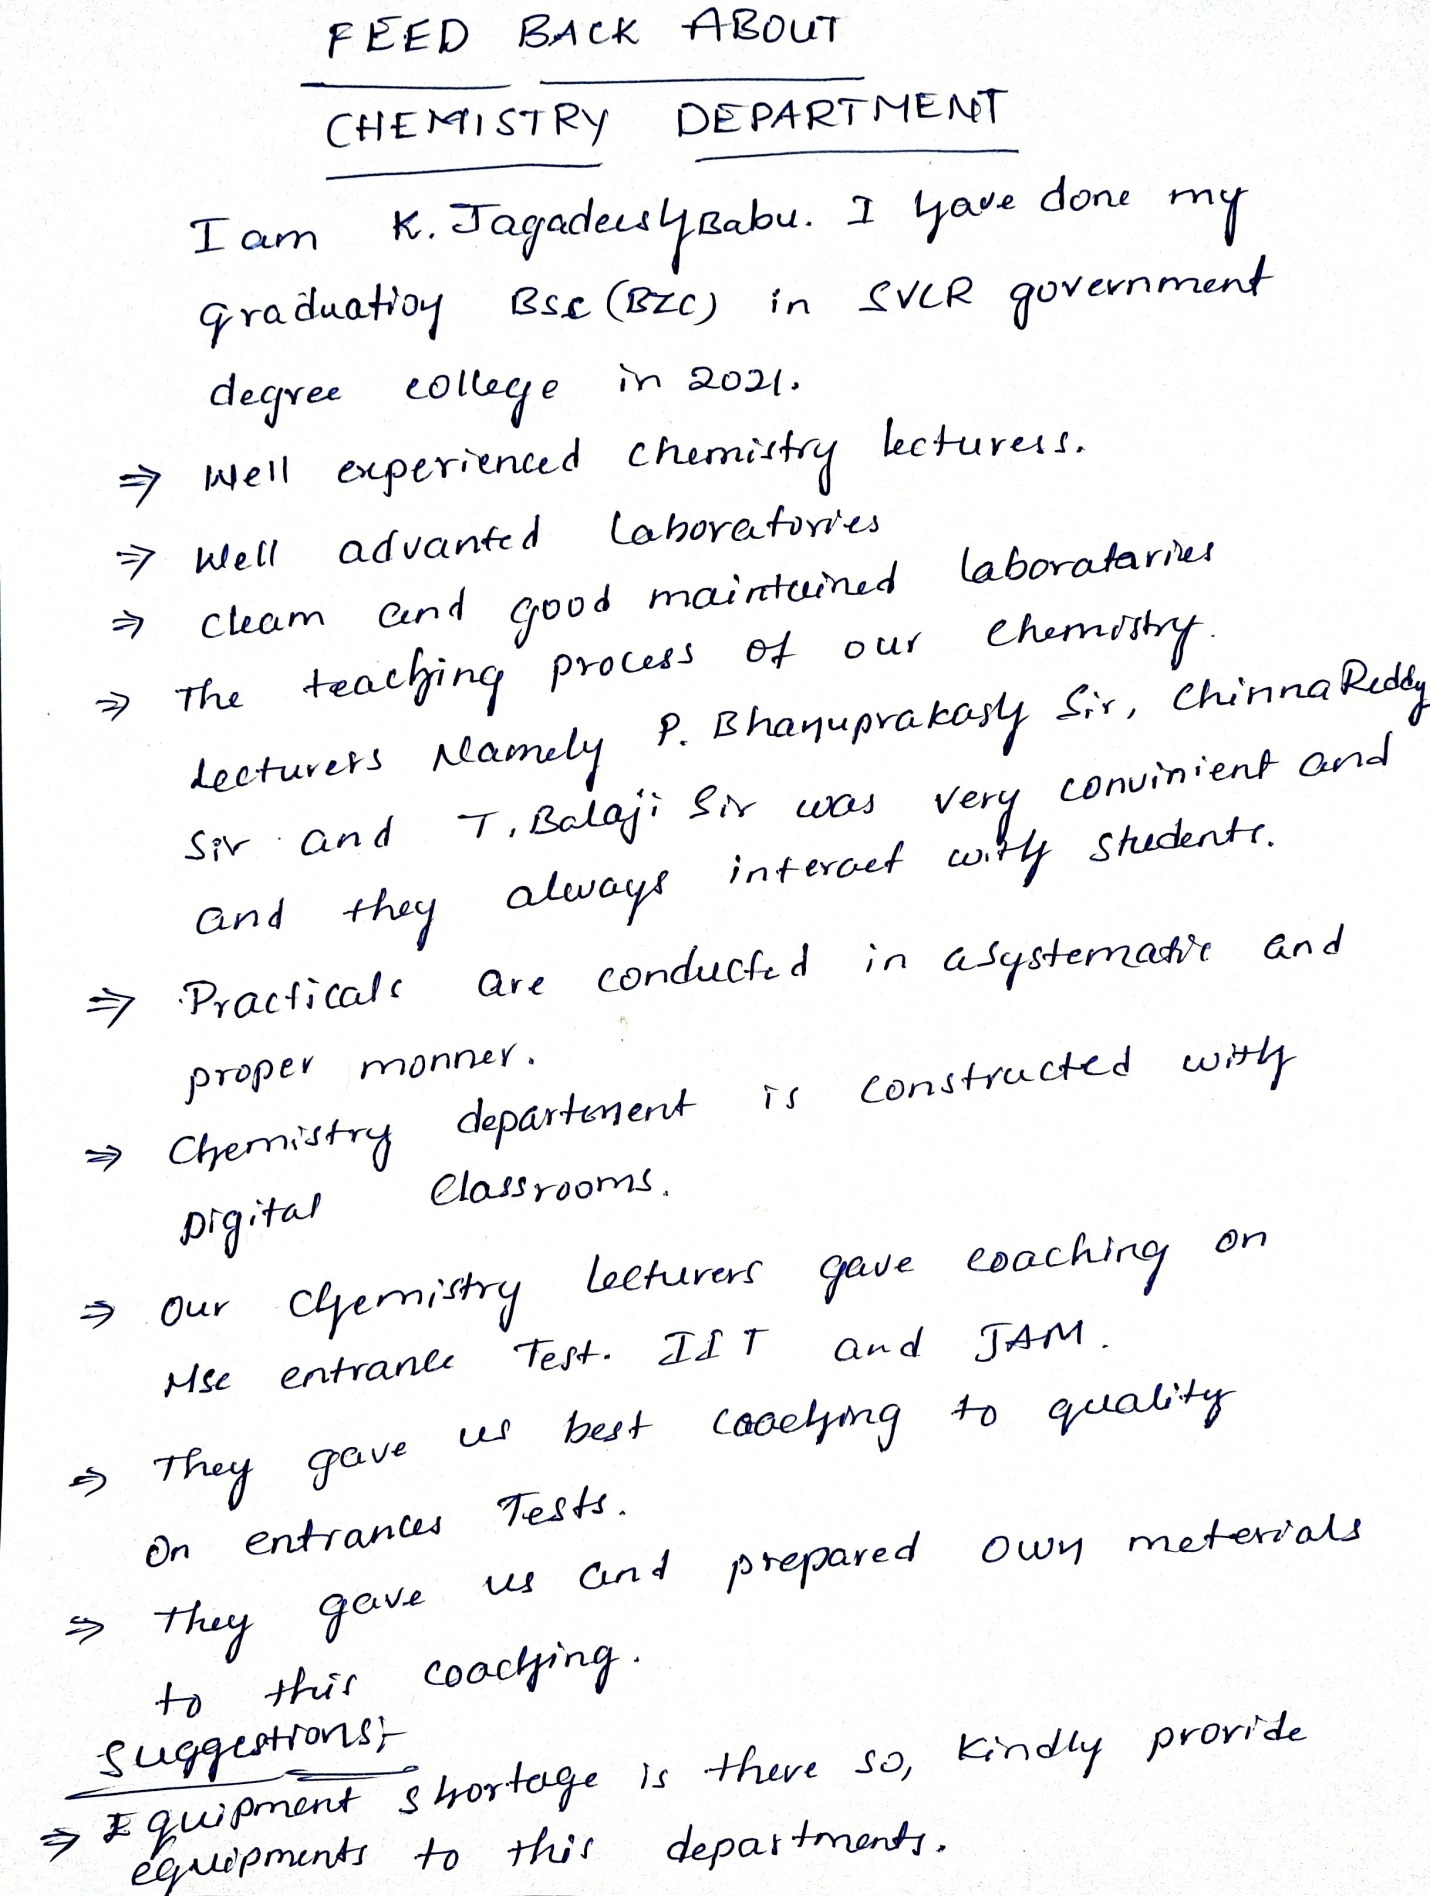 FEED BACK ABOUT
CHEMISTRY DEPARTMENT
I am K. Jagadeesh Babu. I have done my
graduation Bsc (BZC) in SVCR government
degree college in 2021.
⇒ Well experienced chemistry lecturess.
⇒ Well advanted laboratories
⇒ clean and good maintained laborataries
⇒ The teaching process of our chemistry.
Lecturers Namely P. Bhanuprakash Sir, Chinna Reddy
Sir and T. Balaji Sir was very convinient and
and they always interact with students.
⇒ Practicals are conducted in a systematic and
proper monner.
⇒ Chemistry department is constructed with
Digital Classrooms.
⇒ Our Chemistry Lecturers gave coaching on
Msc entrance Test. IIT and JAM.
⇒ They gave us best coaching to quality
On entrances Tests.
⇒ They gave us and prepared own meterials
to this coaching.
Suggestions:-
⇒ Equipment shortage is there so, Kindly provide
equipments to this departments.